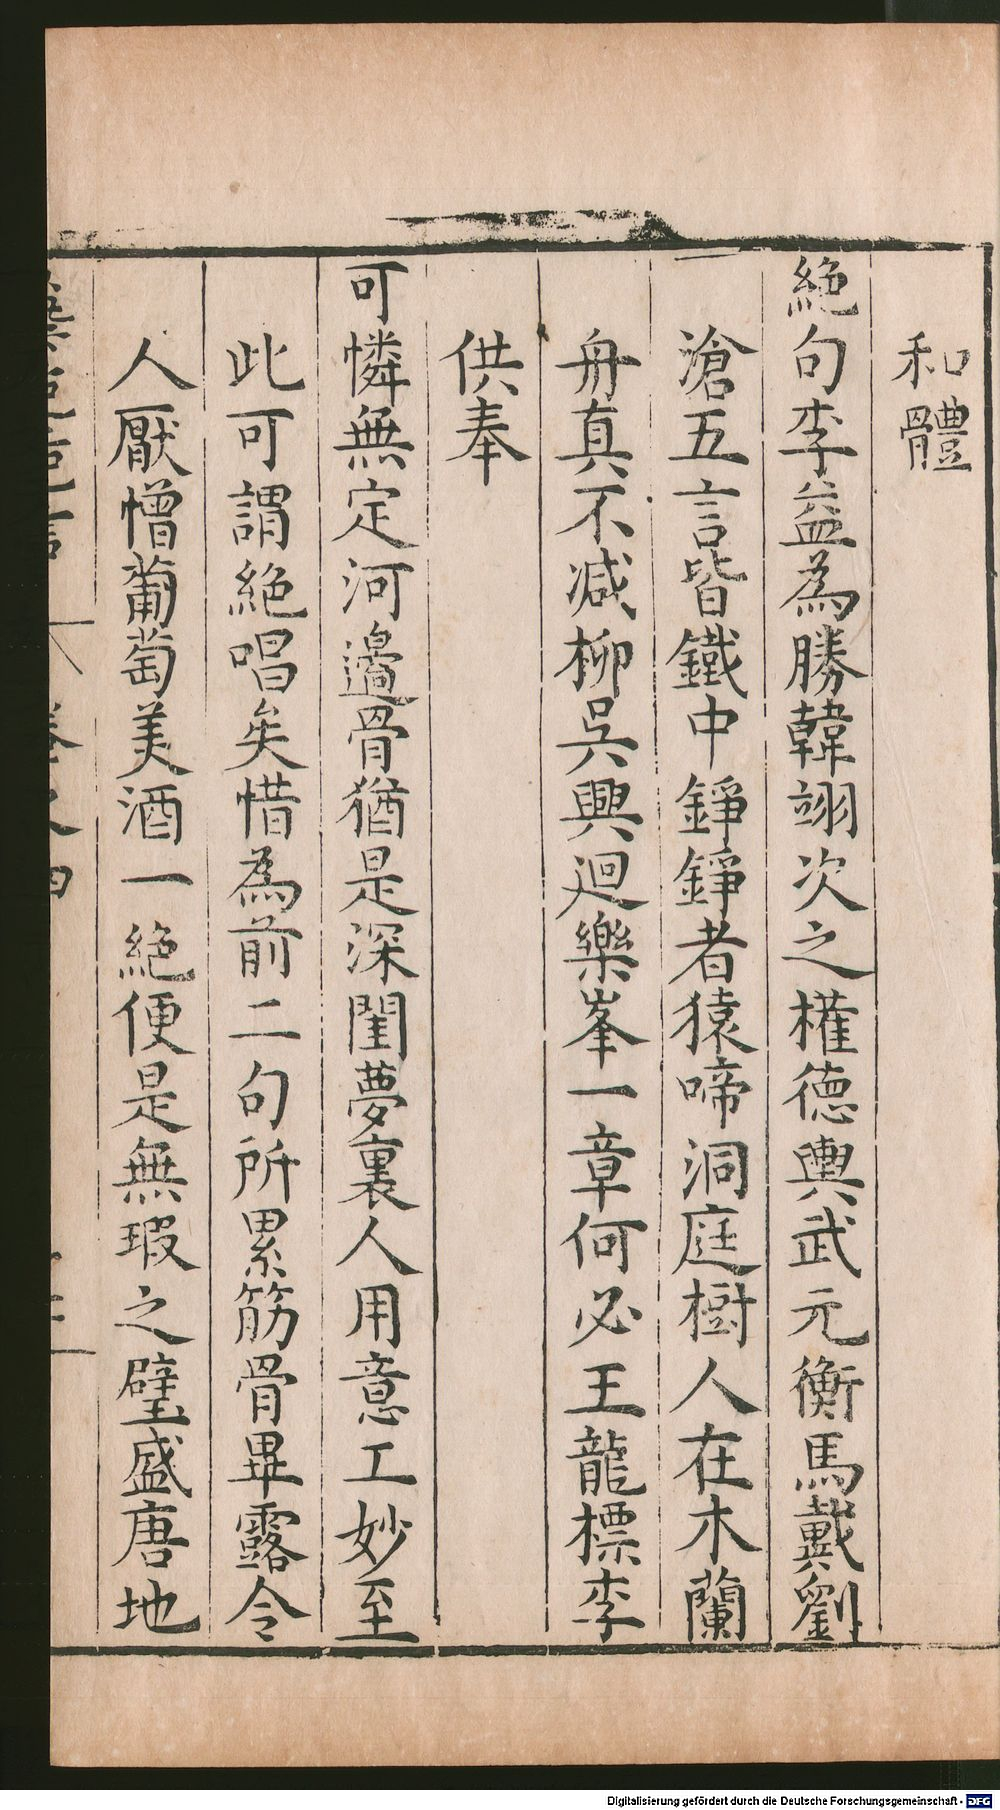 和體
絶句李益為勝韓翊次之權德輿武元衡馬戴劉
滄五言皆鐵中錚錚者猿啼洞庭樹人在木蘭
舟真不减柳吳興迴樂峯一章何必王龍標李
供奉
可憐無定河邊骨猶是深閨夢裏人用意工妙至
此可謂絶唱矣惜為前二句所累筋骨畢露令
人厭憎葡萄美酒一絶便是無瑕之璧盛唐地
Digitalisierung gefördert durch die Deutsche Forschungsgemeinschaft - DFG